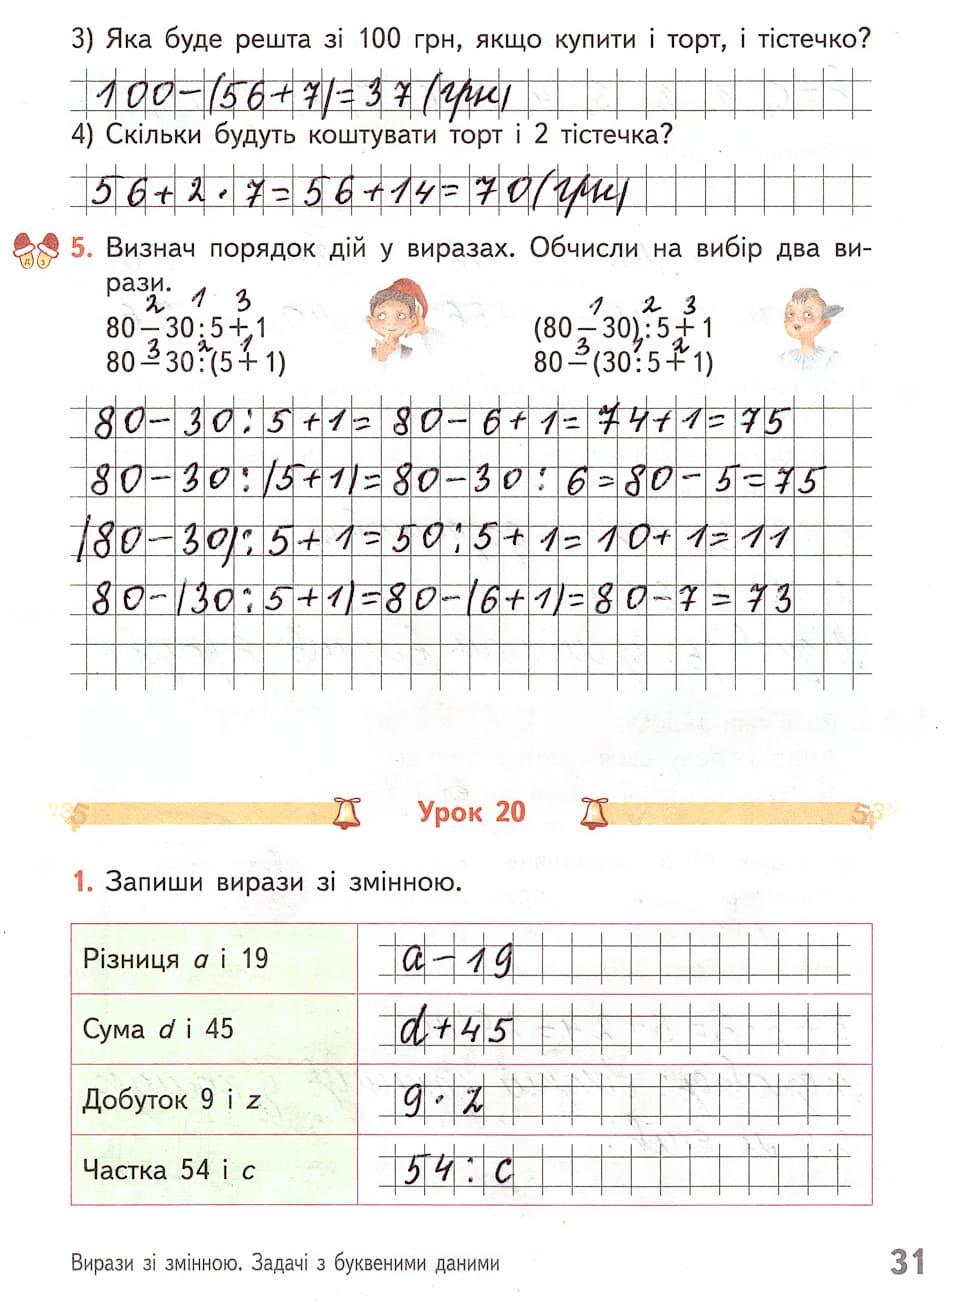 3) Яка буде решта зі 100 грн, якщо купити і торт, і тістечко?
100-(56+7)=37(грн)
4) Скільки будуть коштувати торт і 2 тістечка?
56+2·7=56+14=70(грн)
5. Визнач порядок дій у виразах. Обчисли на вибір два ви-
рази.
2 1 3
1 2 3
80 – 30 : 5 + 1
(80 – 30) : 5 + 1
3 2 1
3 1 2
80 – 30 : (5 + 1)
80 – (30 : 5 + 1)
80-30:5+1=80-6+1=74+1=75
80-30:(5+1)=80-30:6=80-5=75
(80-30):5+1=50:5+1=10+1=11
80-(30:5+1)=80-(6+1)=80-7=73
Урок 20
1. Запиши вирази зі змінною.
Різниця a і 19
a-19
Сума d і 45
d+45
Добуток 9 і z
9·z
Частка 54 і c
54:c
Вирази зі змінною. Задачі з буквеними даними
31